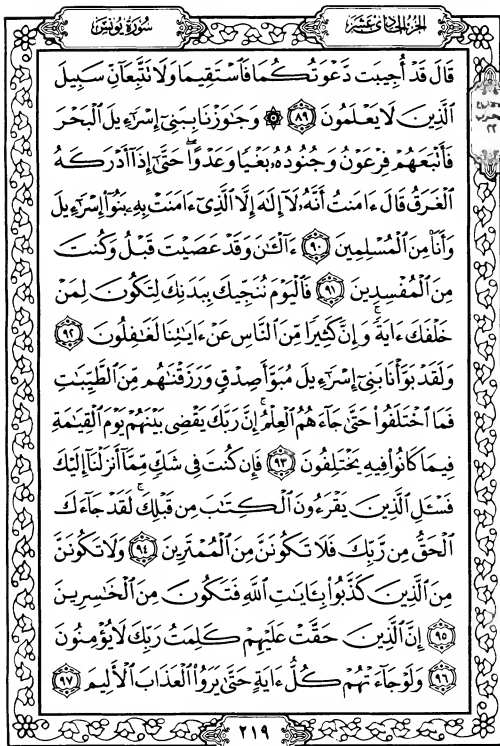 سُورَةُ يُونُسَ
الجُزءُ الحَادِي عَشَرَ
قَالَ قَدْ أُجِيبَت دَّعْوَتُكُمَا فَاسْتَقِيمَا وَلَا تَتَّبِعَآنِّ سَبِيلَ
الَّذِينَ لَا يَعْلَمُونَ ٨٩ ۞ وَجَاوَزْنَا بِبَنِي إِسْرَٰٓءِيلَ الْبَحْرَ
فَأَتْبَعَهُمْ فِرْعَوْنُ وَجُنُودُهُۥ بَغْيًا وَعَدْوًا ۖ حَتَّىٰٓ إِذَآ أَدْرَكَهُ
الْغَرَقُ قَالَ ءَامَنتُ أَنَّهُۥ لَآ إِلَٰهَ إِلَّا الَّذِىٓ ءَامَنَتْ بِهِۦ بَنُوٓا۟ إِسْرَٰٓءِيلَ
وَأَنَا۠ مِنَ الْمُسْلِمِينَ ٩٠ ءَآلْـَٰٔنَ وَقَدْ عَصَيْتَ قَبْلُ وَكُنتَ
مِنَ الْمُفْسِدِينَ ٩١ فَالْيَوْمَ نُنَجِّيكَ بِبَدَنِكَ لِتَكُونَ لِمَنْ
خَلْفَكَ ءَايَةً ۚ وَإِنَّ كَثِيرًا مِّنَ النَّاسِ عَنْ ءَايَٰتِنَا لَغَٰفِلُونَ ٩٢
وَلَقَدْ بَوَّأْنَا بَنِىٓ إِسْرَٰٓءِيلَ مُبَوَّأَ صِدْقٍ وَرَزَقْنَٰهُم مِّنَ الطَّيِّبَٰتِ
فَمَا اخْتَلَفُوا۟ حَتَّىٰ جَآءَهُمُ الْعِلْمُ ۚ إِنَّ رَبَّكَ يَقْضِى بَيْنَهُمْ يَوْمَ الْقِيَٰمَةِ
فِيمَا كَانُوا۟ فِيهِ يَخْتَلِفُونَ ٩٣ فَإِن كُنتَ فِى شَكٍّ مِّمَّآ أَنزَلْنَآ إِلَيْكَ
فَسْـَٔلِ الَّذِينَ يَقْرَءُونَ الْكِتَٰبَ مِن قَبْلِكَ ۚ لَقَدْ جَآءَكَ
الْحَقُّ مِن رَّبِّكَ فَلَا تَكُونَنَّ مِنَ الْمُمْتَرِينَ ٩٤ وَلَا تَكُونَنَّ
مِنَ الَّذِينَ كَذَّبُوا۟ بِـَٔايَٰتِ اللَّهِ فَتَكُونَ مِنَ الْخَٰسِرِينَ
٩٥ إِنَّ الَّذِينَ حَقَّتْ عَلَيْهِمْ كَلِمَتُ رَبِّكَ لَا يُؤْمِنُونَ
٩٦ وَلَوْ جَآءَتْهُمْ كُلُّ ءَايَةٍ حَتَّىٰ يَرَوُا۟ الْعَذَابَ الْأَلِيمَ ٩٧
٢١٩